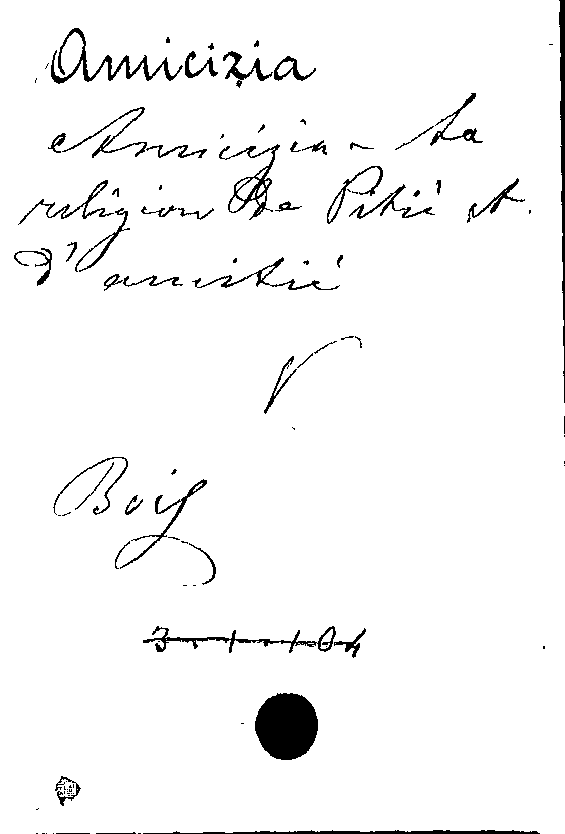 Amicizia
Amicizia - La
religion De Pitié et
D'amistié
V
Bois
3.1.104